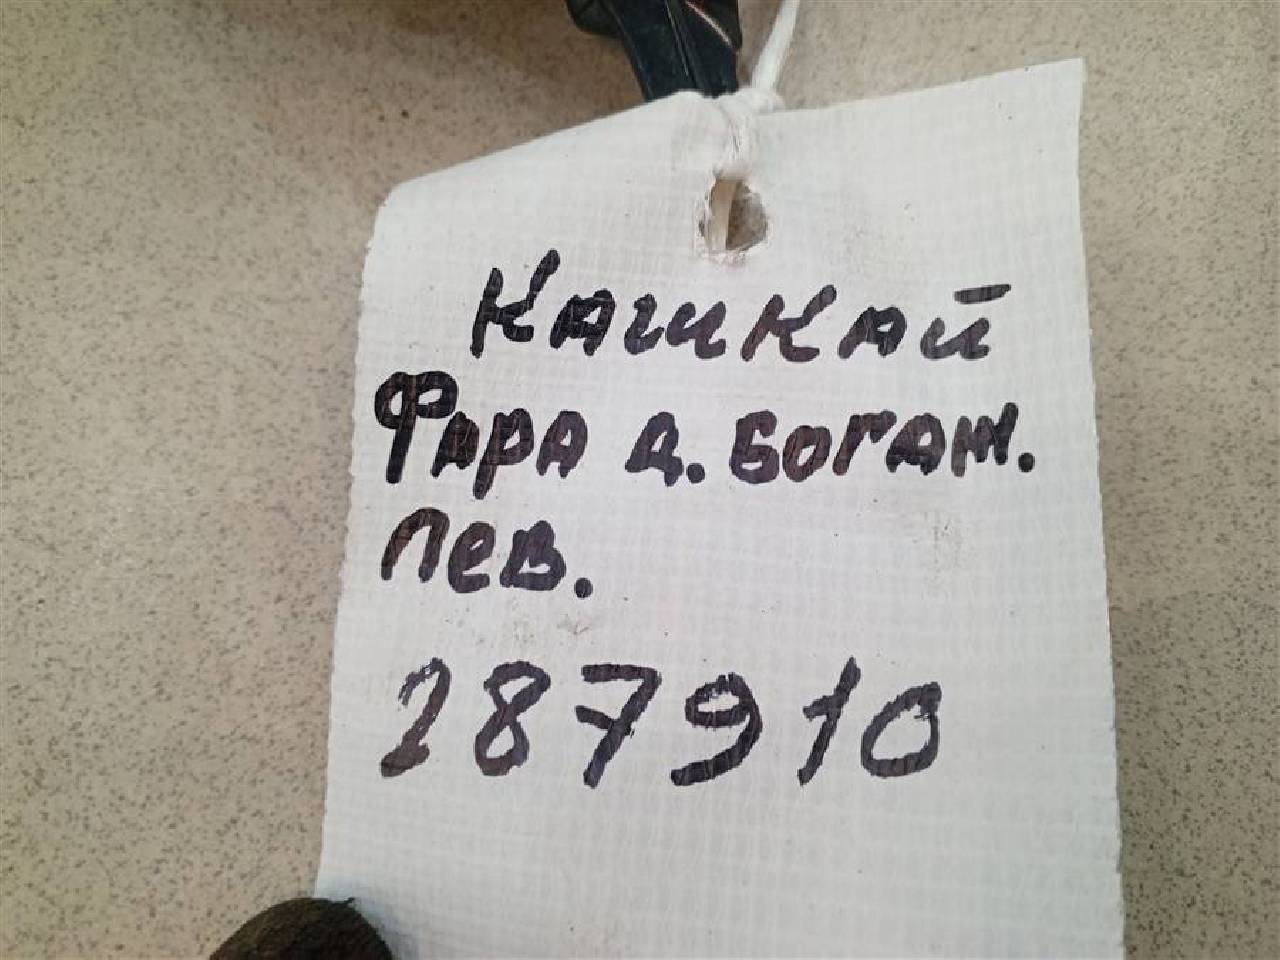 Кашкай
Фара д. богаж.
лев.
287910